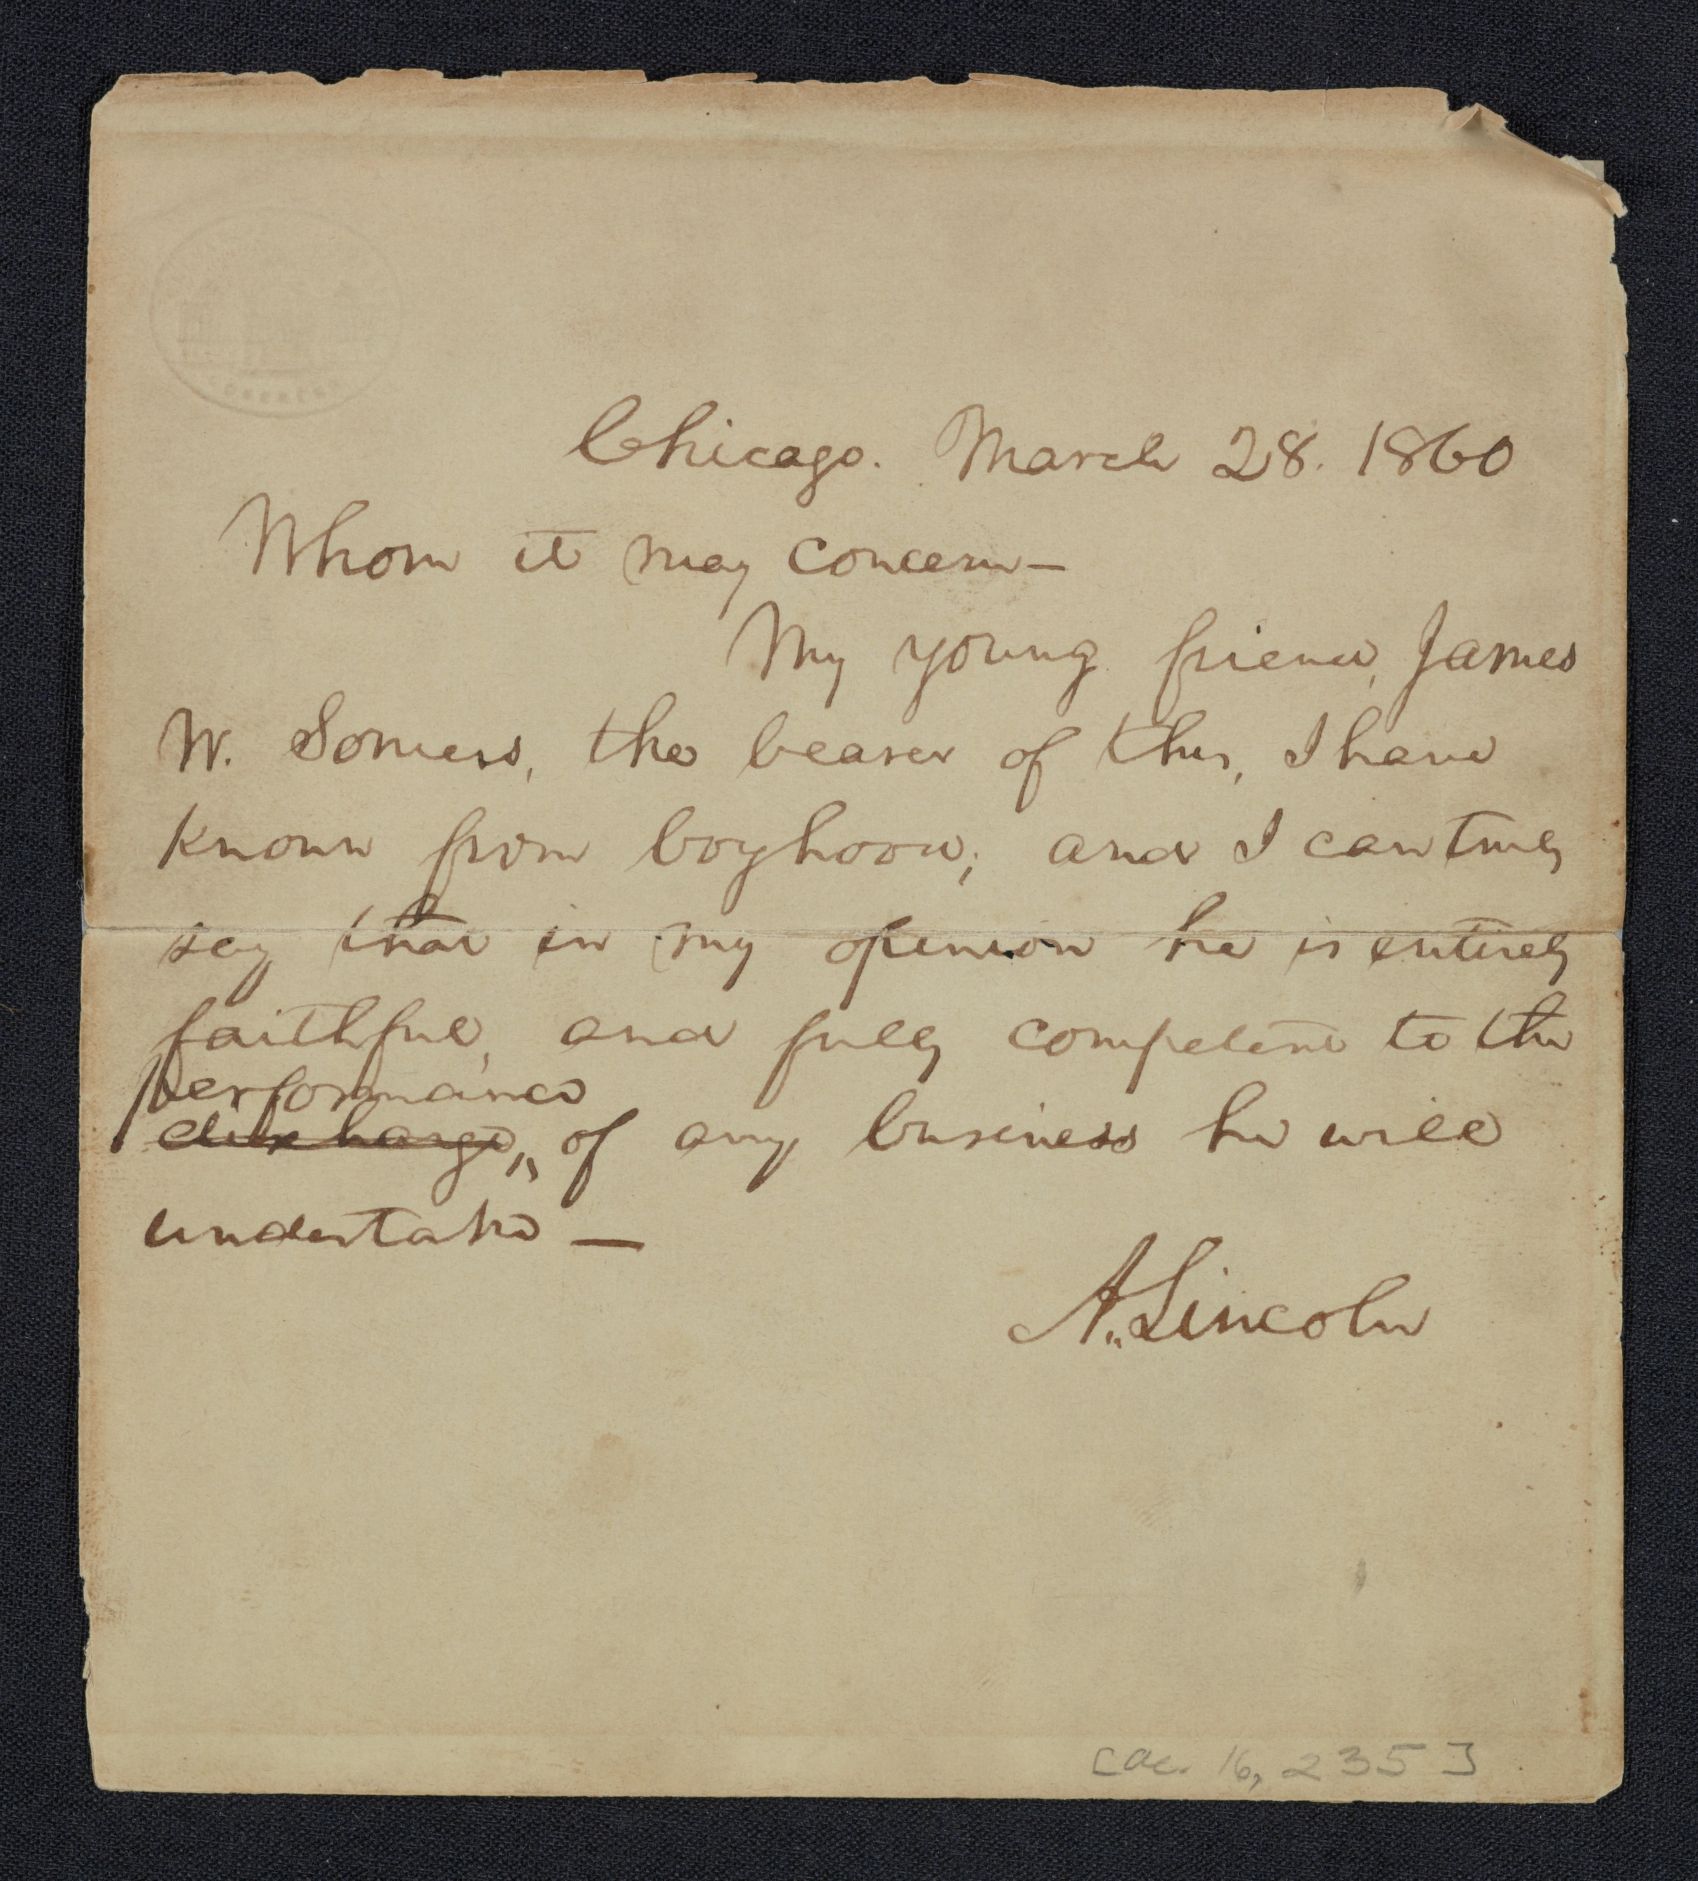 CONGRESS
Chicago. March 28. 1860
Whom it may concern—
My young friend, James
W. Somers, the bearer of this, I have
known from boyhood; and I can truly
say that in my opinion he is entirely
faithful, and fully competent to the
performance
discharge of any business he will
undertake—
A. Lincoln
[ac. 16,235]